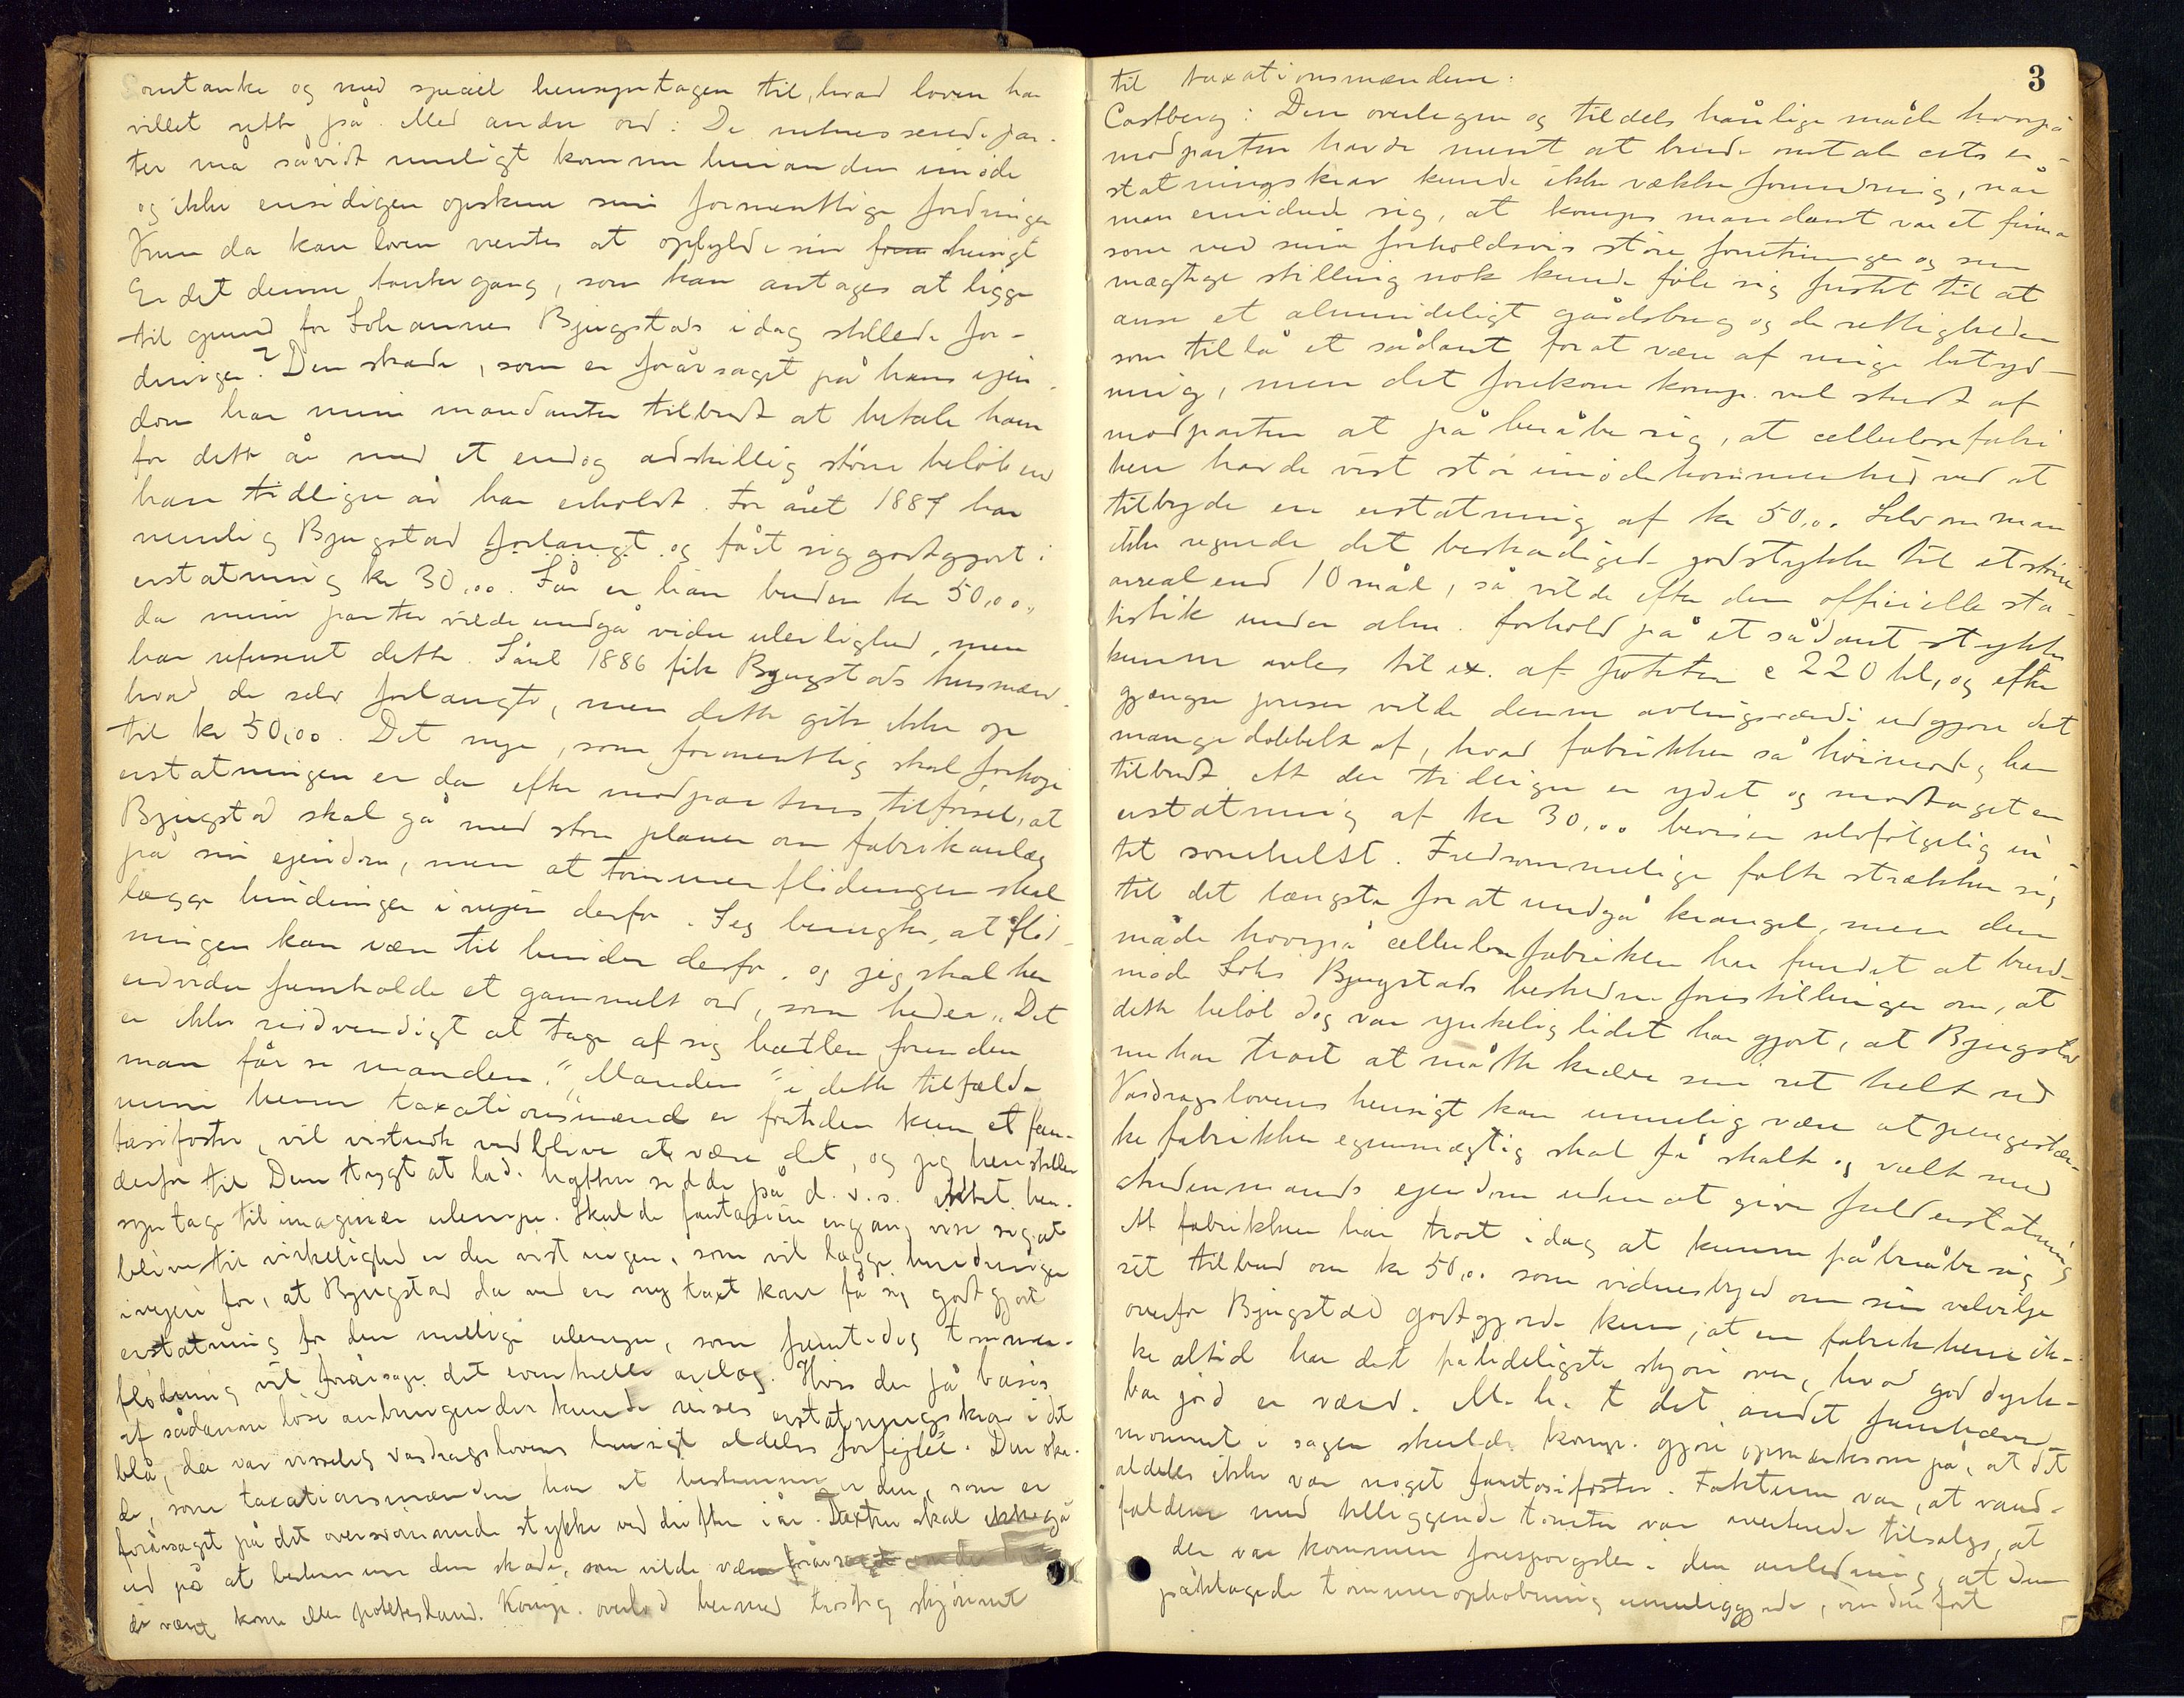 omtanke og med speciel hensyntagen til, hvad loven har
villet rette på. Med andre ord: De interesserede par-
ter må såvidt muligt komme hinanden imøde
og ikke ensidigen opskrue sine formentlige fordringer
Kun da kan loven ventes at opfylde sin hensigt
Er det denne tankegang, som kan antages at ligge
til grund for Johannes Bjugstads idag stillede for-
dringer? Den skade, som er forårsaget på hans ejen-
dom har mine mandanter tilbudt at betale ham
for dette år med et endog adskillig større beløb end
han tidligere år har erholdt. For året 1887 har
nemlig Bjugstad forlangt og fåt sig godtgjort i
erstatning kr 30,00. I år er han buden kr 50,00,
da mine parter vilde undgå videre uleilighed, men
har refuseret dette. I året 1886 fik Bjugstads husmænd
hvad de selv forlangte, men dette gik ikke op
til kr 50,00. Det nye, som formentlig skal forhøje
erstatningen er da efter modpartens tilførsel, at
Bjugstad skal gå med store planer om fabrikanlæg
på sin ejendom, men at tømmerflødningen skal
lægge hindringer i vejen derfor. Jeg benægter, at flød-
ningen kan være til hinder derfor, og jeg skal her
endvidere fremholde et gammelt ord, som heder „Det
er ikke nødvendigt at tage af sig hatten førenden
man får se manden." „Manden" i dette tilfælde
mine herrer taxationsmænd er fortiden kun et fan-
tasifoster, vil vistnok vedblive at være det, og jeg henstiller
derfor til Dem trygt at lade hatten sidde på d. v. s. intet hen-
syn tage til imaginær ulempe. Skulde fantasien engang vise sig at
blive til virkelighed er der vist ingen, som vil lægge hindringer
i vejen for, at Bjugstad da ved en ny taxt kan få sig godtgjort
erstatning for den mulige ulempe, som fremtidig tømmer-
flødning vil forårsage det eventuelle anlæg. Hvis der på basis
af sådanne løse anbringender kunde reises erstatningskrav i det
blå, da var visselig vasdragslovens hensigt aldeles forfejlet. Den ska-
de, som taxationsmændene har at bestemme er den, som er
forårsaget på det oversvømmede stykke ved driften i år. Taxten skal ikke gå
ud på at bestemme den skade, som vilde være forårsaget om der
været korn eller potetesland. Komp. overlod hermed trøstig skjønnet
3
til taxationsmændene.
Castberg: Den overlegne og tildels hånlige måde hvorpå
modparten havde ment at burde omtale cits er-
statningskrav kunde ikke vække forundring, når
man erindrede sig, at komps mandant var et firma
som ved sine forholdsvis store forretninger og sin
mægtige stilling nok kunde føle sig fristet til at
anse et almindeligt gårdsbrug og de rettigheder
som tillå et sådant for at være af ringe betyd-
ning, men det forekom komp. vel sterkt af
modparten at påberåbe sig, at cellulosefabri
ken havde vist stor imødekommenhed ved at
tilbyde en erstatning af kr 50,00. Selv om man
ikke regnede det beskadigede jordstykke til et større
areal end 10 mål, så vilde efter den officielle sta-
tistik under alm. forhold på et sådant stykke
kunne avles til ex. af poteter c 220 hl, og efter
gjængse priser vilde denne avlingsværdi udgjøre det
mangedobbelte af, hvad fabrikken så høimodig har
tilbudt. At der tidligere er ydet og modtaget en
erstatning af kr 30,00 beviser selvfølgelig in-
tet somhelst. Fredsommelige folk strækker sig
til det længste for at undgå krangel, men den
måde hvorpå cellulosefabriken har fundet at burde
møde Johs Bjugstads beskedne forestillinger om, at
dette beløb dog var ynkelig lidet har gjort, at Bjugstad
nu har troet at måtte kræve sin ret helt ud
Vasdragslovens hensigt kan umulig være at pengestær-
ke fabrikker egenmægtig skal få skalte og valte med
andenmands ejendom uden at give fuld erstatning
At fabrikken har troet idag at kunne påberåbe sig
sit tilbud om kr 50,00 som vidnesbyrd om sin velvilje
overfor Bjugstad godtgjorde kun, at en fabrikherre ik-
ke altid har det pålideligste skjøn over, hvad god dyrk-
bar jord er værd. M. h. t. det andet fremhævede
moment i sagen skulde komp. gjøre opmærksom på, at det
aldeles ikke var noget fantasifoster. Faktum var, at vand-
faldene med tilliggende tomter var averterede tilsalgs, at
der var kommen forespørgsler i den anledning, at den
påklagede tømmerophobning umuliggjorde, om den fort